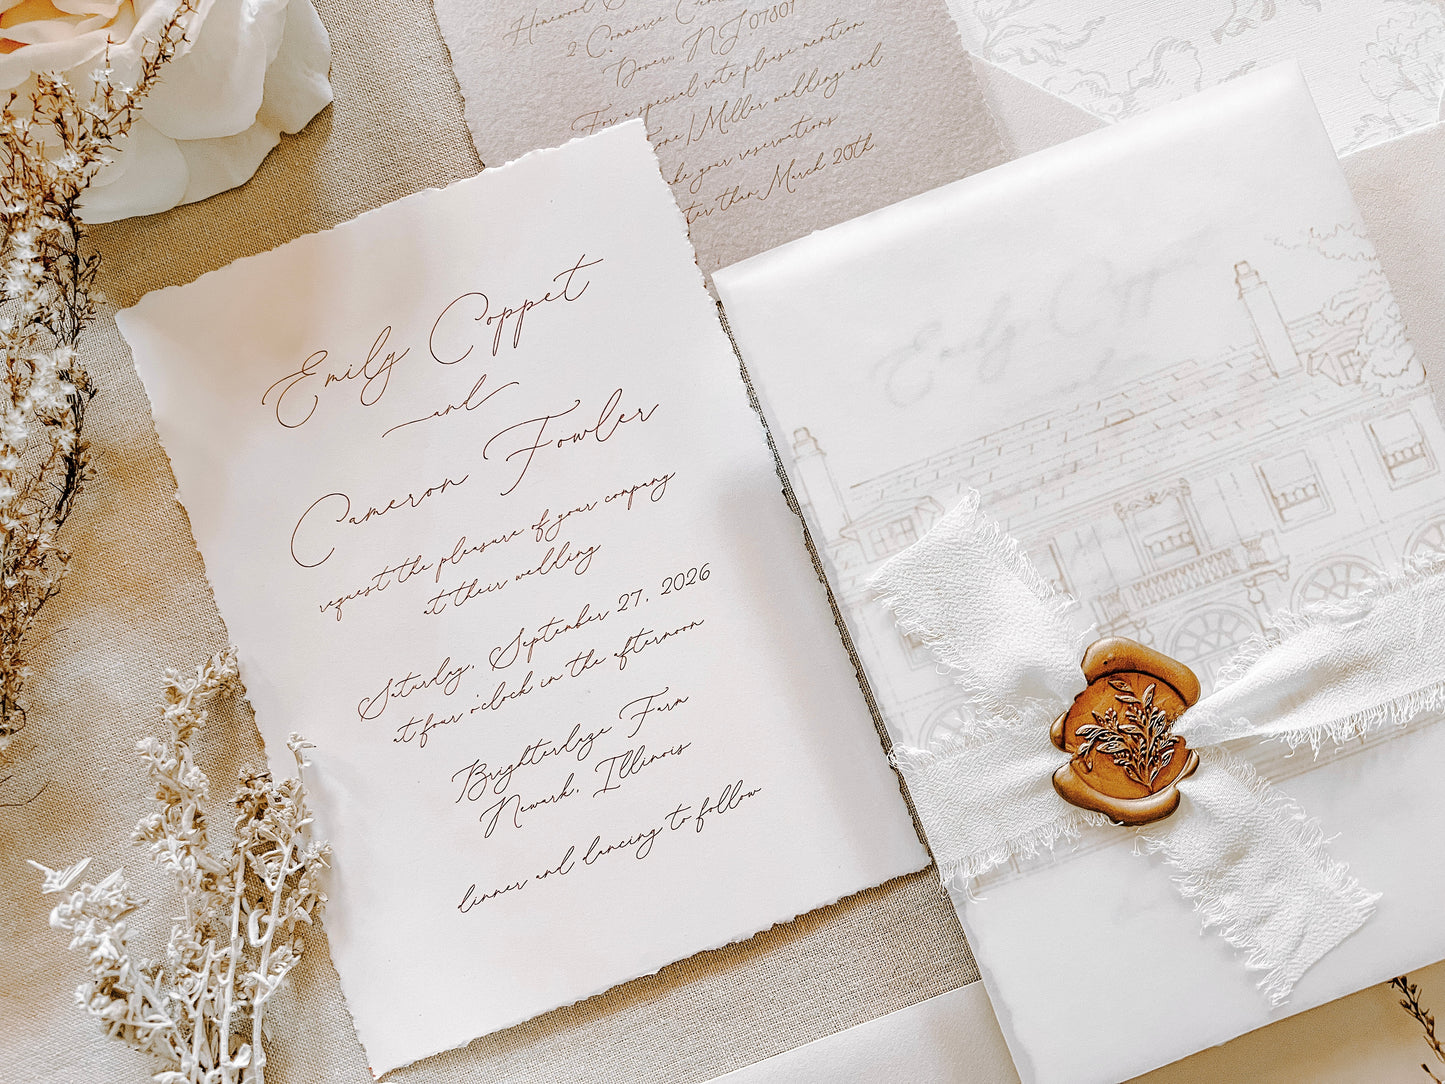 Emily Coppet
and
Cameron Fowler
request the pleasure of your company
at their wedding
Saturday, September 27, 2026
at four o'clock in the afternoon
Brighterdaze Farm
Newark, Illinois
dinner and dancing to follow
Homewood
2 Commerce
Dover, NJ 07801
For a special rate please mention
/Miller wedding and
your reservations
than March 20th
Emily Coppet